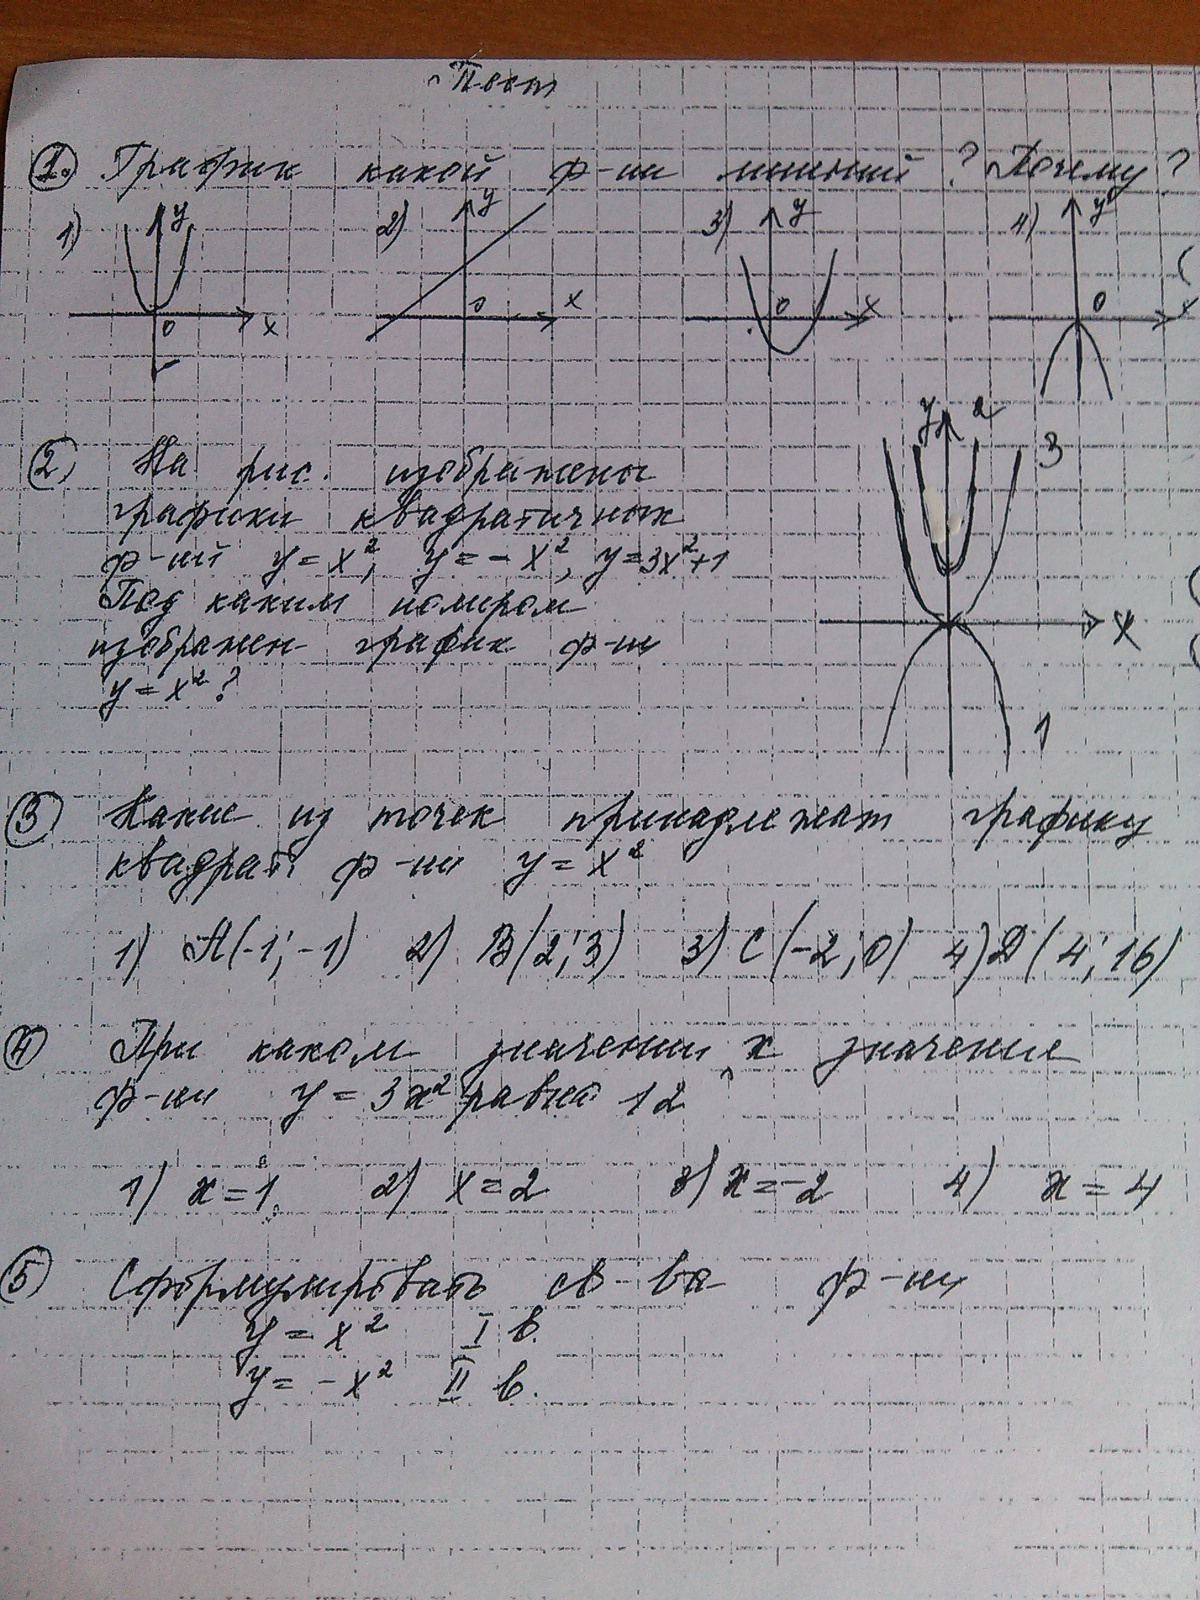 Тест
1. График какой ф-ии лишний? Почему?
1) y 2) y 3) y 4) y
0 x 0 x 0 x 0 x
2. На рис. изображены
графики квадратичных
ф-ий y = x², y = - x², y = 3x²+1
Под каким номером
изображен график ф-ии
y = x²?
y 2
3
x
1
3 Какие из точек принадлежат графику
квадрат. ф-ии y = x²
1) A(-1; -1) 2) B(2; 3) 3) C(-2; 0) 4) D(4; 16)
4 При каком значении x значение
ф-ии y = 3x² равно 12
1) x = 1 2) x = 2 3) x = -2 4) x = 4
5 Сформулировать св-ва ф-ии
y = x² I в.
y = - x² II в.